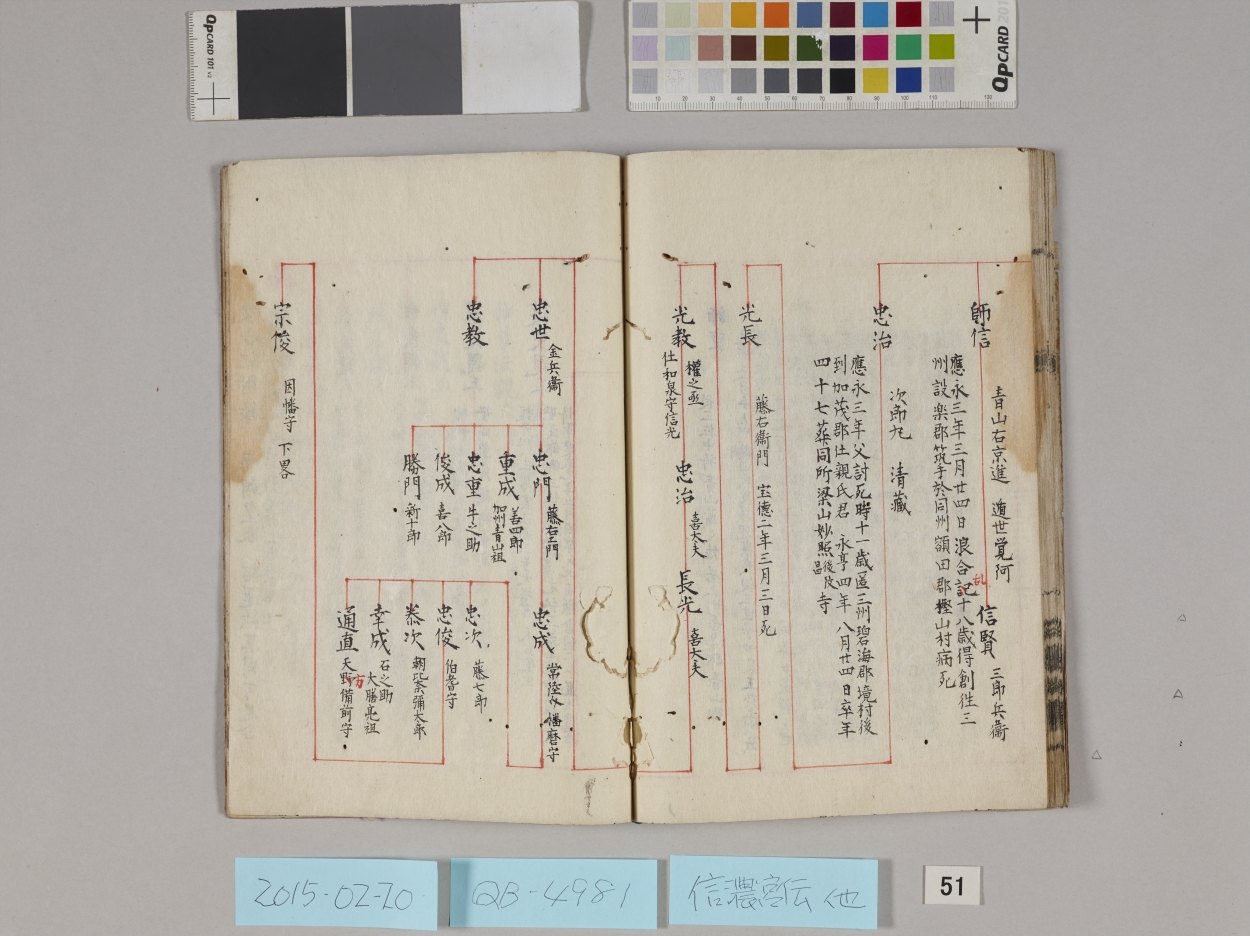 QPCARD 101 v2
QPCARD 201
師信
青山右京進 遁世覚阿
應永三年三月廿四日浪合記十八歳得創徃三
乱
州設楽郡筑手於同州額田郡樫山村病死
信賢
三郎兵衞
忠治
次郎九 清藏
應永三年父討死時十一歳遁三州碧海郡境村後
到加茂郡仕親氏君 永亨四年八月廿四日卒年
四十七葬同所梁山妙照後改寺
昌
光長
藤右衞門 宝徳二年三月三日死
光教
權之丞
仕和泉守信光
忠治
喜太夫
長光
喜大夫
忠世
金兵衞
忠教
忠門
藤右エ門
重成
善四郎
加州青山祖
忠重
牛之助
俊成
喜八郎
勝門
新十郎
忠成
常陸介 播磨守
忠次
藤七郎
忠俊
伯耆守
泰次
朝比奈彌太郎
幸成
石之助
大膳亮祖
通直
天野備前守
方
宗俊
因幡守 下畧
2015-02-20
QB-4981
信濃宮伝 他
51